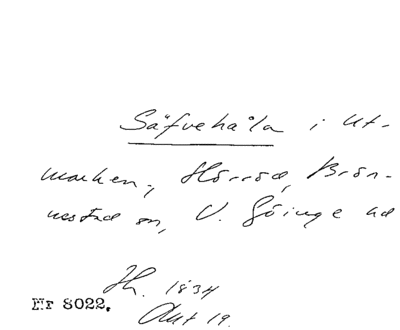 Säfvehåla i Ut-
marken, Hörröd, Brön-
nestad sn, V. Göinge hd
Hr. 1834
Akt 19.
Nr 8022.